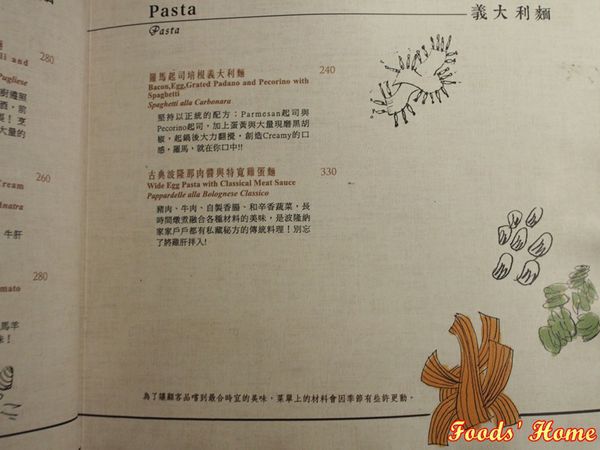 280
Pugliese
260
Cream
牛肝
280
Pasta
Pasta
義大利麵
羅馬起司培根義大利麵 240
Bacon,Egg,Grated Padano and Pecorino with
Spaghetti
Spaghetti alla Carbonara
堅持以正統的配方：Parmesan起司與
Pecorino起司，加上蛋黃與大量現磨黑胡
椒，起鍋後大力翻攪，創造Creamy的口
感，羅馬，就在你口中!!
古典波隆那肉醬與特寬雞蛋麵 330
Wide Egg Pasta with Classical Meat Sauce
Pappardelle alla Bolognese Classico
豬肉、牛肉、自製香腸、和辛香蔬菜，長
時間燉煮融合各種材料的美味，是波隆納
家家戶戶都有私藏秘方的傳統料理！別忘
了將雞肝拌入!
為了讓顧客品嚐到最合時宜的美味，菜單上的材料會因季節有些許更動。
Foods' Home